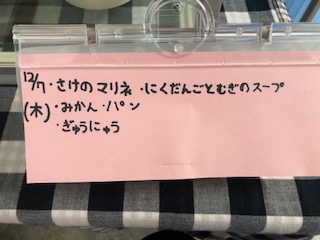 12/7・さけのマリネ ・にくだんごとむぎのスープ
(木)・みかん ・パン
・ぎゅうにゅう